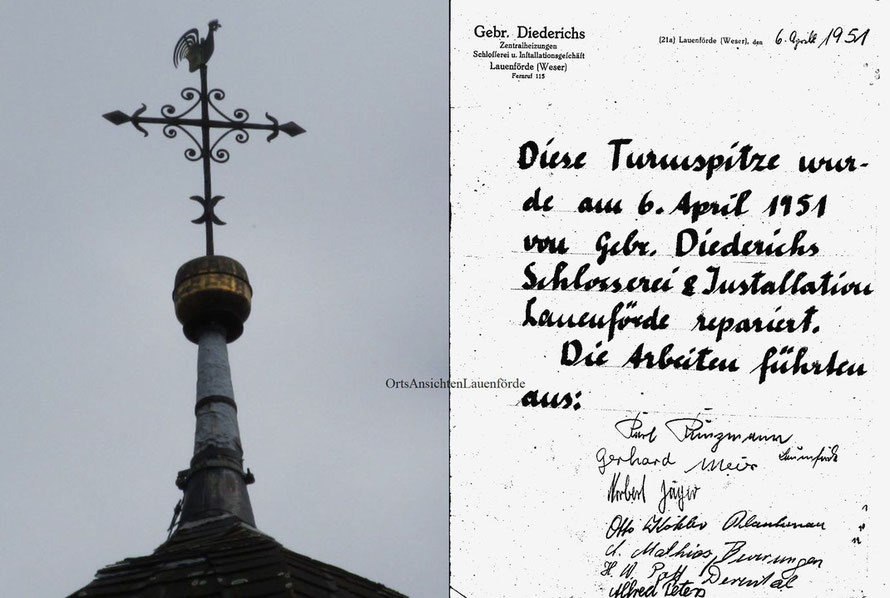 Gebr. Diederichs
Zentralheizungen
Schlosserei u. Installationsgeschäft
Lauenförde (Weser)
Fernruf 115
(21a) Lauenförde (Weser), den 6. April 1951
Diese Turmspitze wur-
de am 6. April 1951
von Gebr. Diederichs
Schlosserei & Installation
Lauenförde repariert.
Die Arbeiten führten
aus:
OrtsAnsichtenLauenförde
Gerhard Meier Lauenförde
Norbert Jäger
Otto Köhler
Mathias, Beverungen
H. W. Derental
Alfred Peters